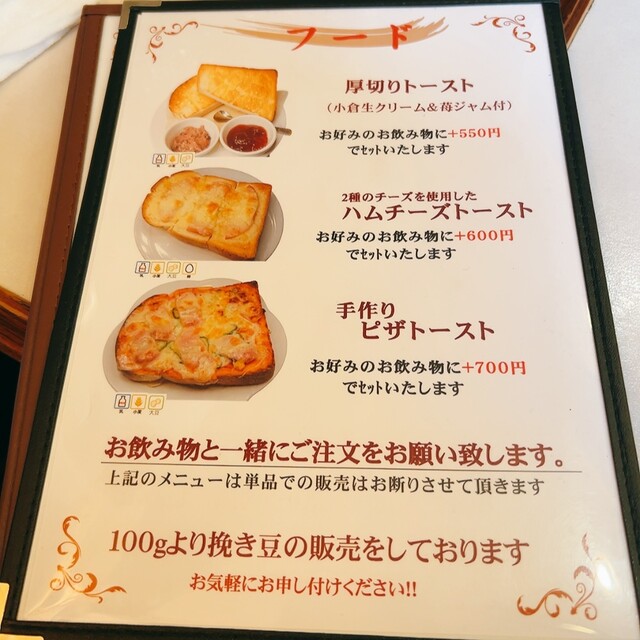 フード
厚切りトースト
(小倉生クリーム&苺ジャム付)
お好みのお飲み物に+550円
でセットいたします
乳 小麦 大豆
2種のチーズを使用した
ハムチーズトースト
お好みのお飲み物に+600円
でセットいたします
乳 小麦 大豆 卵
手作り
ピザトースト
お好みのお飲み物に+700円
でセットいたします
乳 小麦 大豆
お飲み物と一緒にご注文をお願い致します。
上記のメニューは単品での販売はお断りさせて頂きます
100gより挽き豆の販売をしております
お気軽にお申し付けください!!